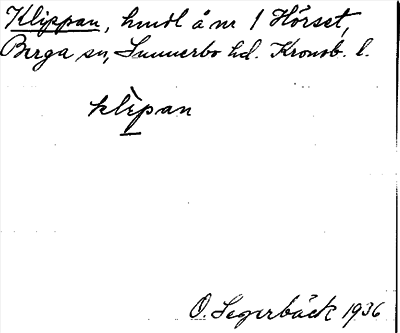 Klippan, hmdl å nr 1 Hörset,
Berga sn, Sunnerbo hd. Kronob. l.
klèpan
O. Segerbäck 1936